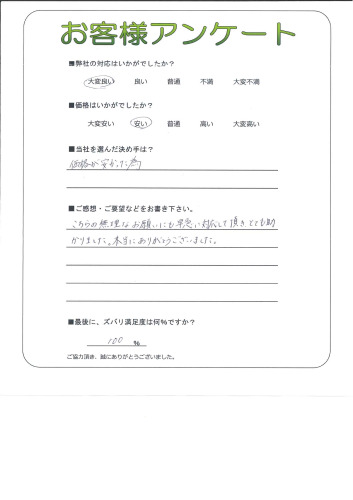 お客様アンケート
■弊社の対応はいかがでしたか?
大変良い 良い 普通 不満 大変不満
■価格はいかがでしたか?
大変安い 安い 普通 高い 大変高い
■当社を選んだ決め手は?
価格が安かった為
■ご感想・ご要望などをお書き下さい。
こちらの無理なお願いにも早急に対応して頂きとても助
かりました。本当にありがとうございました。
■最後に、ズバリ満足度は何%ですか?
100 %
ご協力頂き、誠にありがとうございました。